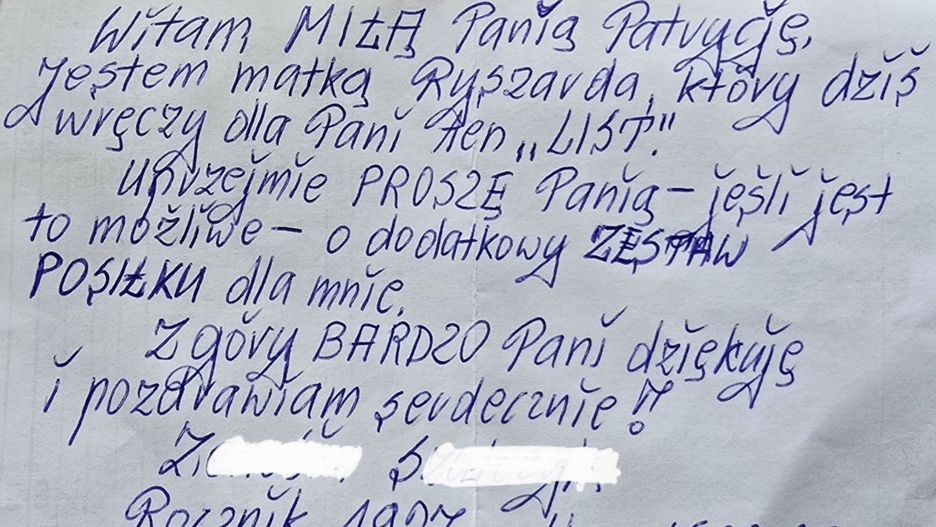 Witam MIŁĄ Panią Patrycję,
jestem matką Ryszarda, który dziś
wręczy dla Pani ten „LIST".
Uprzejmie PROSZĘ Panią – jeśli jest
to możliwe – o dodatkowy ZESTAW
POSIŁKU dla mnie.
Z góry BARDZO Pani dziękuję
i pozdrawiam serdecznie!!
Rocznik